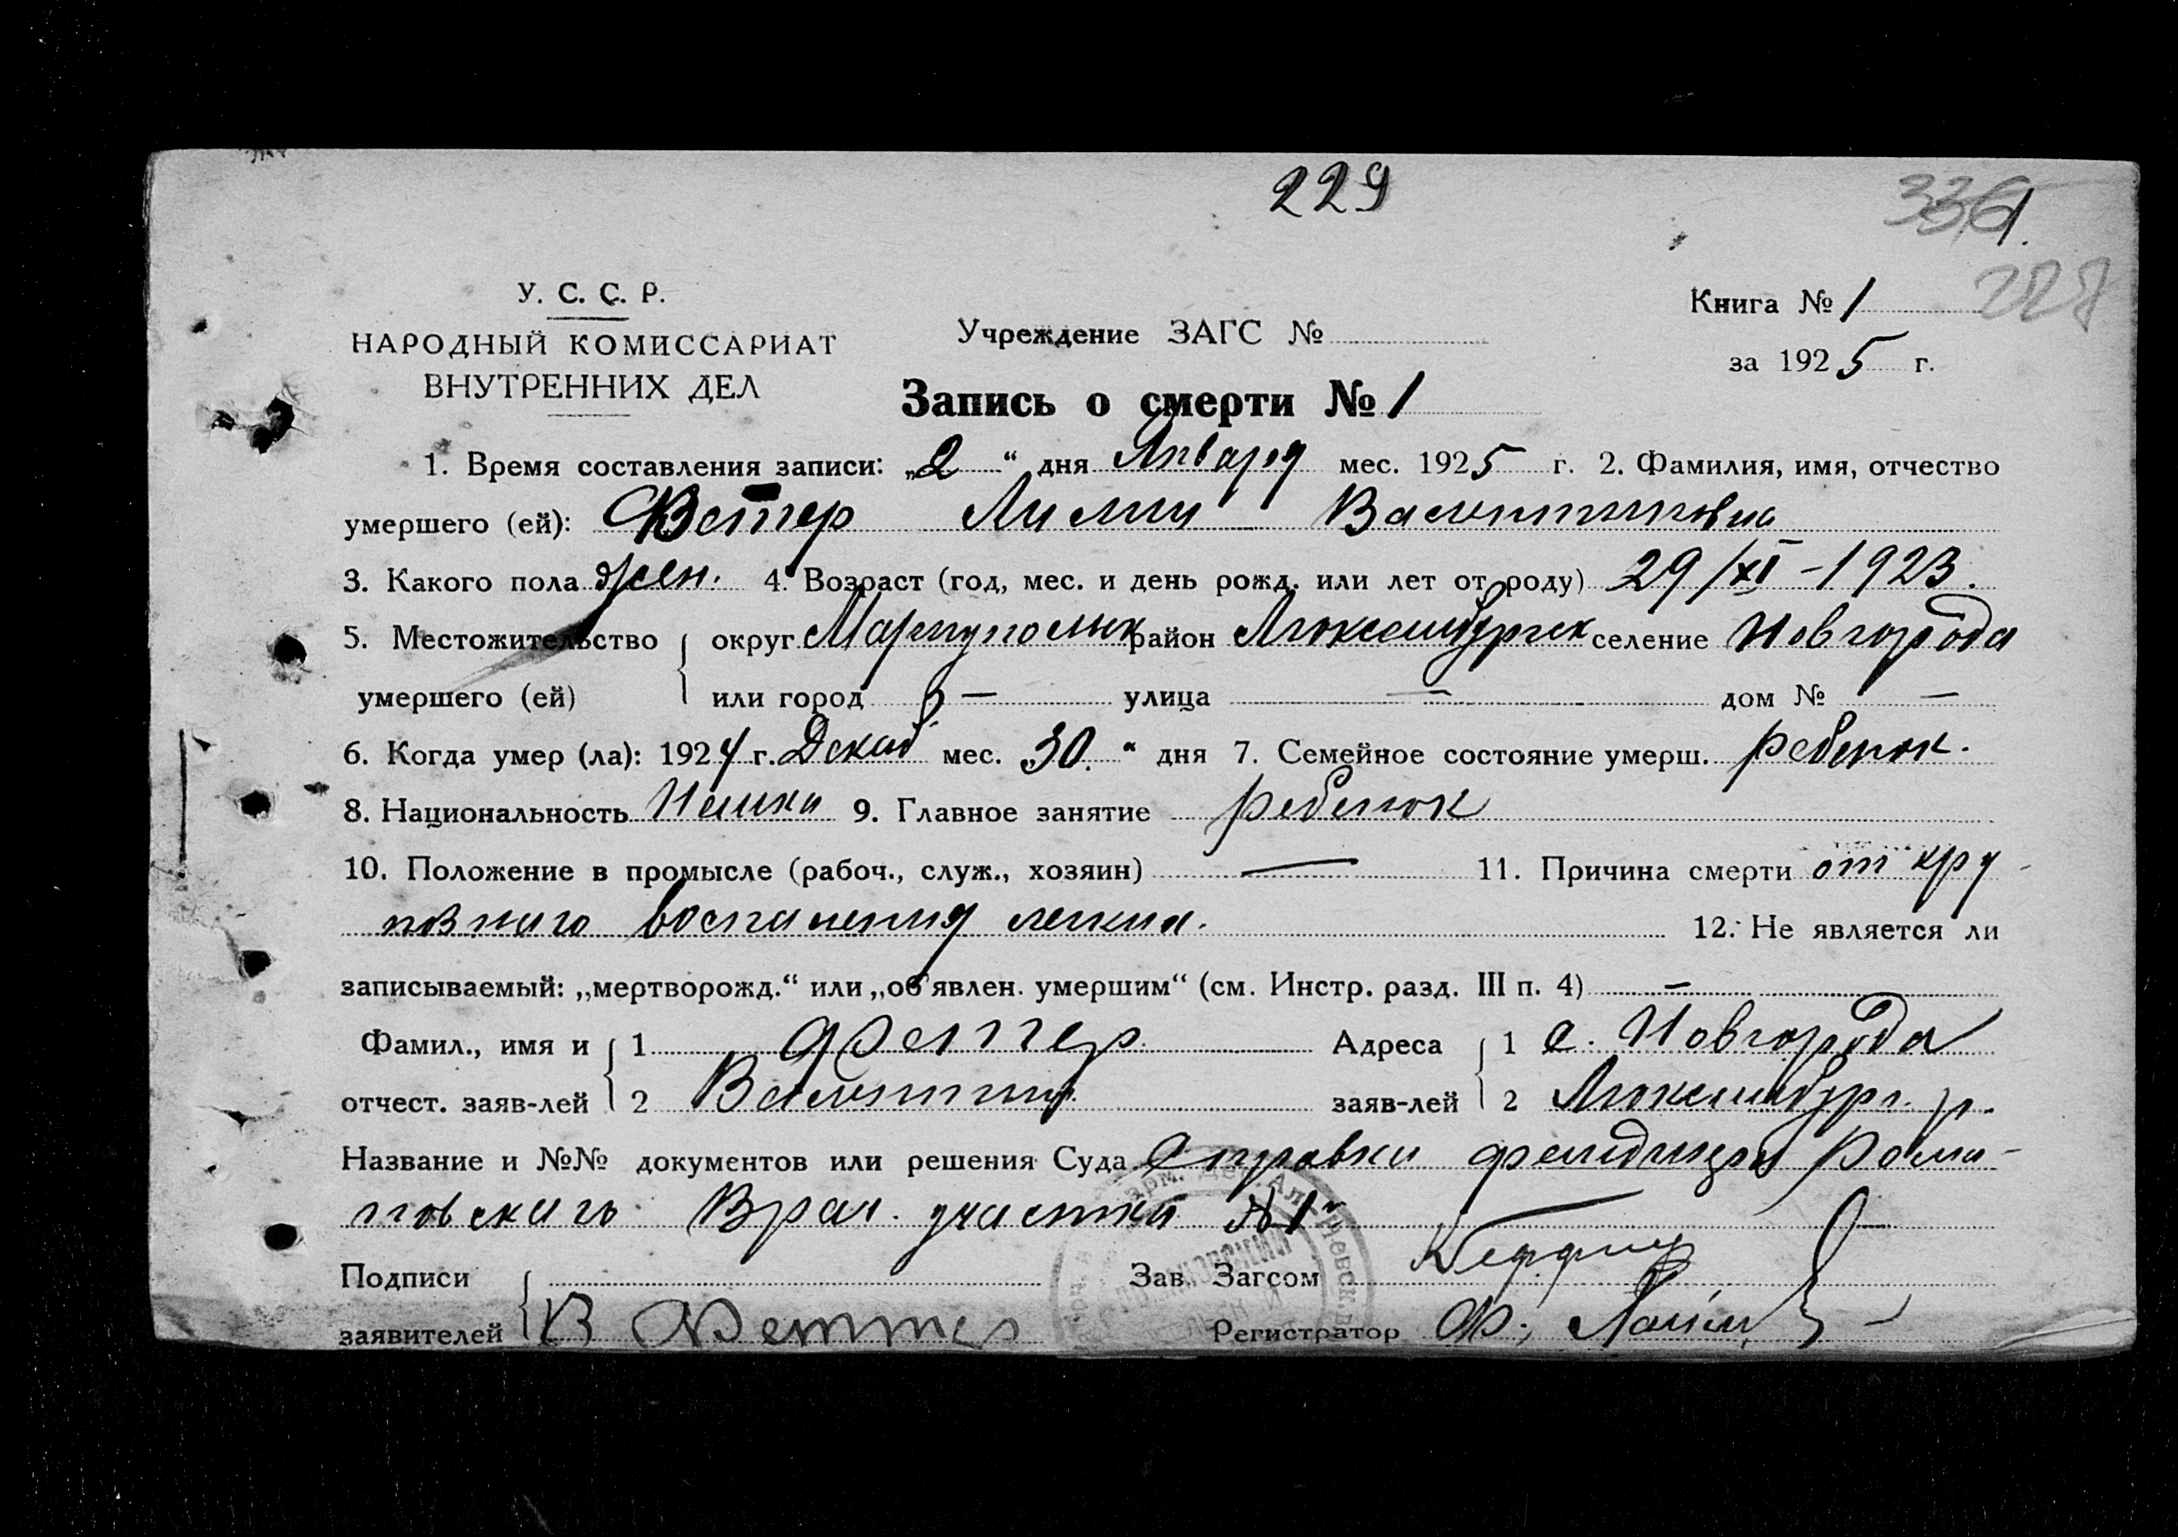 229
336 1.
228
У. С. С. Р.
НАРОДНЫЙ КОМИССАРИАТ
ВНУТРЕННИХ ДЕЛ
Учреждение ЗАГС №
Книга № 1
за 1925 г.
Запись о смерти № 1
1. Время составления записи: „2“ дня Января мес. 1925 г. 2. Фамилия, имя, отчество
умершего (ей): Фетер Лилии Валентиновна
3. Какого пола жен. 4. Возраст (год, мес. и день рожд. или лет от роду) 29/XI – 1923.
5. Местожительство округ Мариупольск район Люксембургск селение Новгорода
умершего (ей) или город – улица – дом № –
6. Когда умер (ла): 1924 г. Декаб. мес. „30“ дня 7. Семейное состояние умерш. ребенок.
8. Национальность Немка 9. Главное занятие ребенок
10. Положение в промысле (рабоч., служ., хозяин) — 11. Причина смерти от кру
позного воспаления легких. 12. Не является ли
записываемый: „мертворожд.“ или „об'явлен. умершим“ (см. Инстр. разд. III п. 4) –
Фамил., имя и 1 Феттер Адреса 1 с. Новгорода
отчест. заяв-лей 2 Валентин заяв-лей 2 Люксембург. р.
Название и №№ документов или решения Суда Справки фельдшера Рома-
новского Врач. участка №1
Подписи Зав. Загсом
заявителей В Феттер Регистратор Ф.